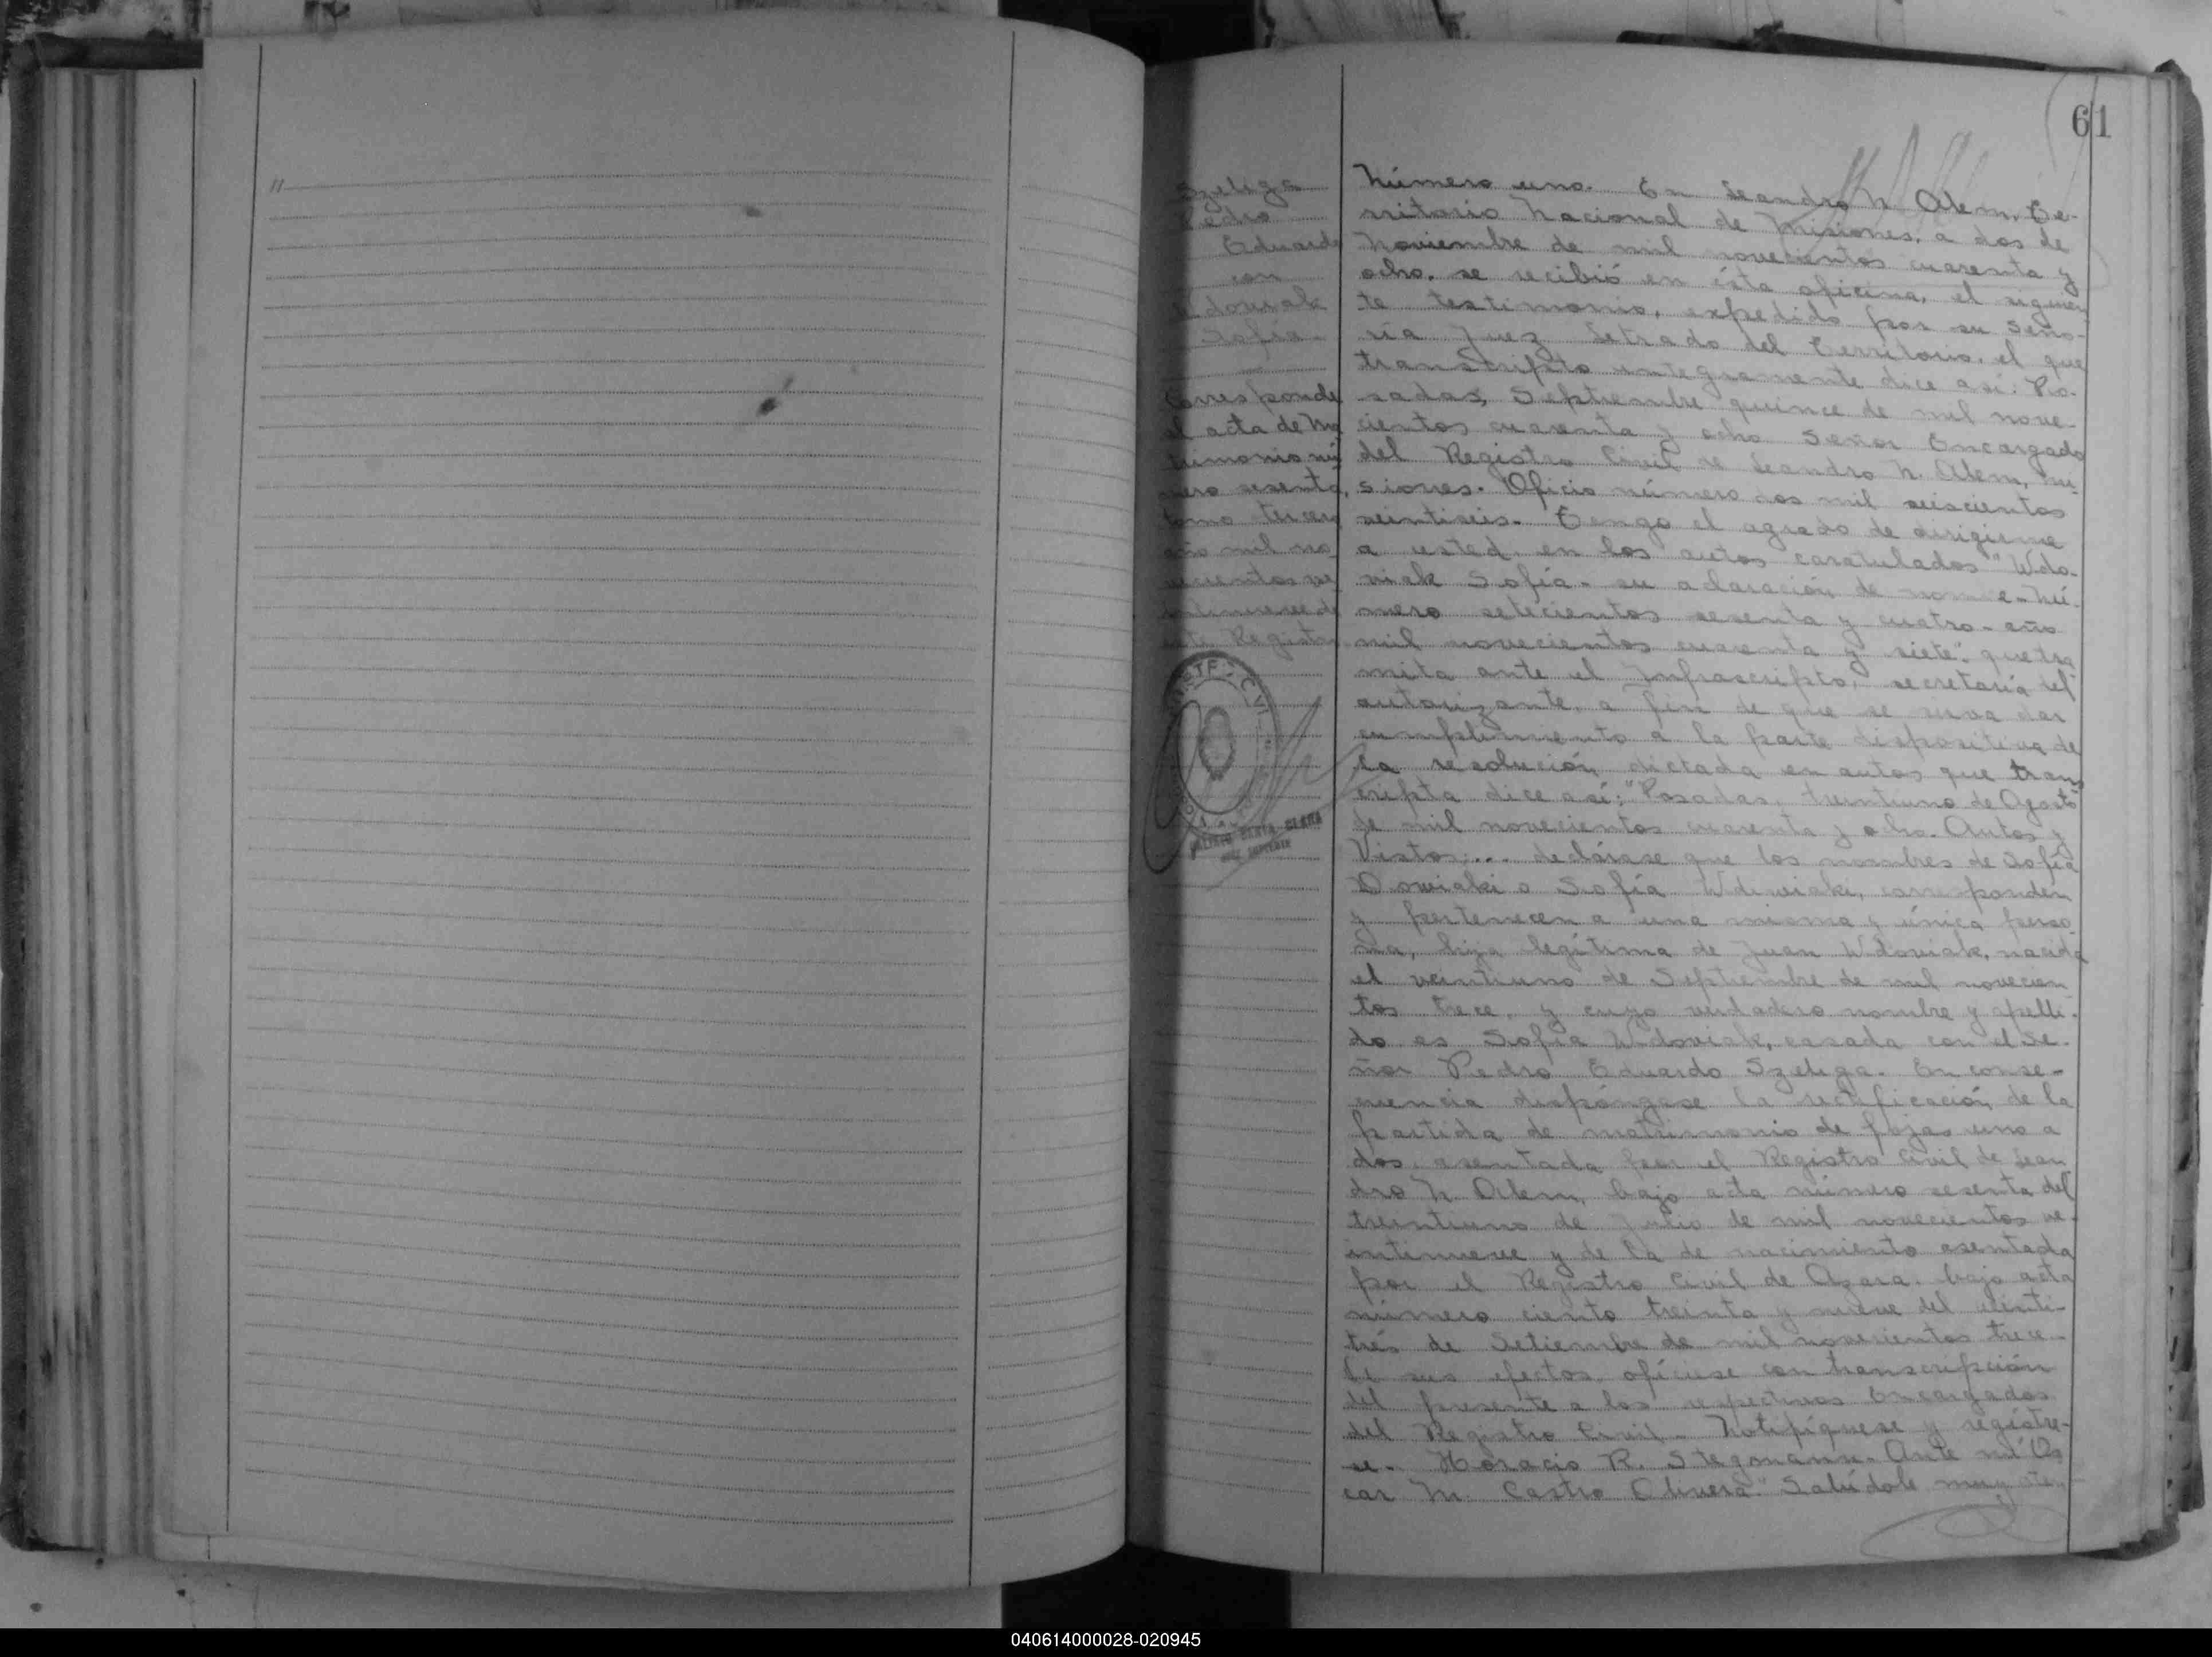 61
Szeliga
Pedro
Eduardo
con
Wdoviak
Sofía.
Corresponde
al acta de Ma
trimonio nú
mero sesenta,
tomo tercero
año mil no
vecientos ve
intinueve de
este Registro
Número uno. En Leandro N. Alem, Te-
rritorio Nacional de Misiones, a dos de
Noviembre de mil novecientos cuarenta y
ocho, se recibió en ésta oficina, el siguien
te testimonio, expedido por su Seño-
ría Juez Letrado del Territorio, el que
transcripto integramente dice así: Po-
sadas, Septiembre quince de mil nove-
cientos cuarenta y ocho Señor Encargado
del Registro Civil de Leandro N. Alem, Mi-
siones. Oficio número dos mil seiscientos
veintiseis. Tengo el agrado de dirigirme
a usted en los autos caratulados "Wdo-
viak Sofía - su aclaración de nombre - Nú-
mero setecientos sesenta y cuatro - año
mil novecientos cuarenta y siete", que tra
mita ante el Infrascripto, secretaría del
autorizante, a fin de que se sirva dar
cumplimiento a la parte dispositiva de
la resolución dictada en autos que trans
cripta dice así: "Posadas, treintiuno de Agosto
de mil novecientos cuarenta y ocho. Autos y
Vistos:... declárase que los nombres de Sofía
Dowiaki o Sofía Wdiwiake, corresponden
y pertenecen a una misma y única perso
na, hija legítima de Juan Wdoviak, nacida
el veintiuno de Septiembre de mil novecien
tos trece, y cuyo verdadero nombre y apelli-
do es Sofía Wdoviak, casada con el Se-
ñor Pedro Eduardo Szeliga. En conse-
cuencia dispóngase la rectificación de la
partida de matrimonio de fojas uno a
dos, asentada por el Registro Civil de Lean
dro N. Alem, bajo acta número sesenta del
treintiuno de Julio de mil novecientos ve-
intinueve y de la de nacimiento asentada
por el Registro Civil de Azara, bajo acta
número ciento treinta y nueve del veinti-
trés de Setiembre de mil novecientos trece.
A sus efectos, ofíciese con transcripción
del presente a los respectivos Encargados
del Registro Civil. Notifíquese y regístre-
se. Horacio R. Stegmann. Ante mí Os
car M. Castro Olivera." Salúdole muy ate.
040614000028-020945